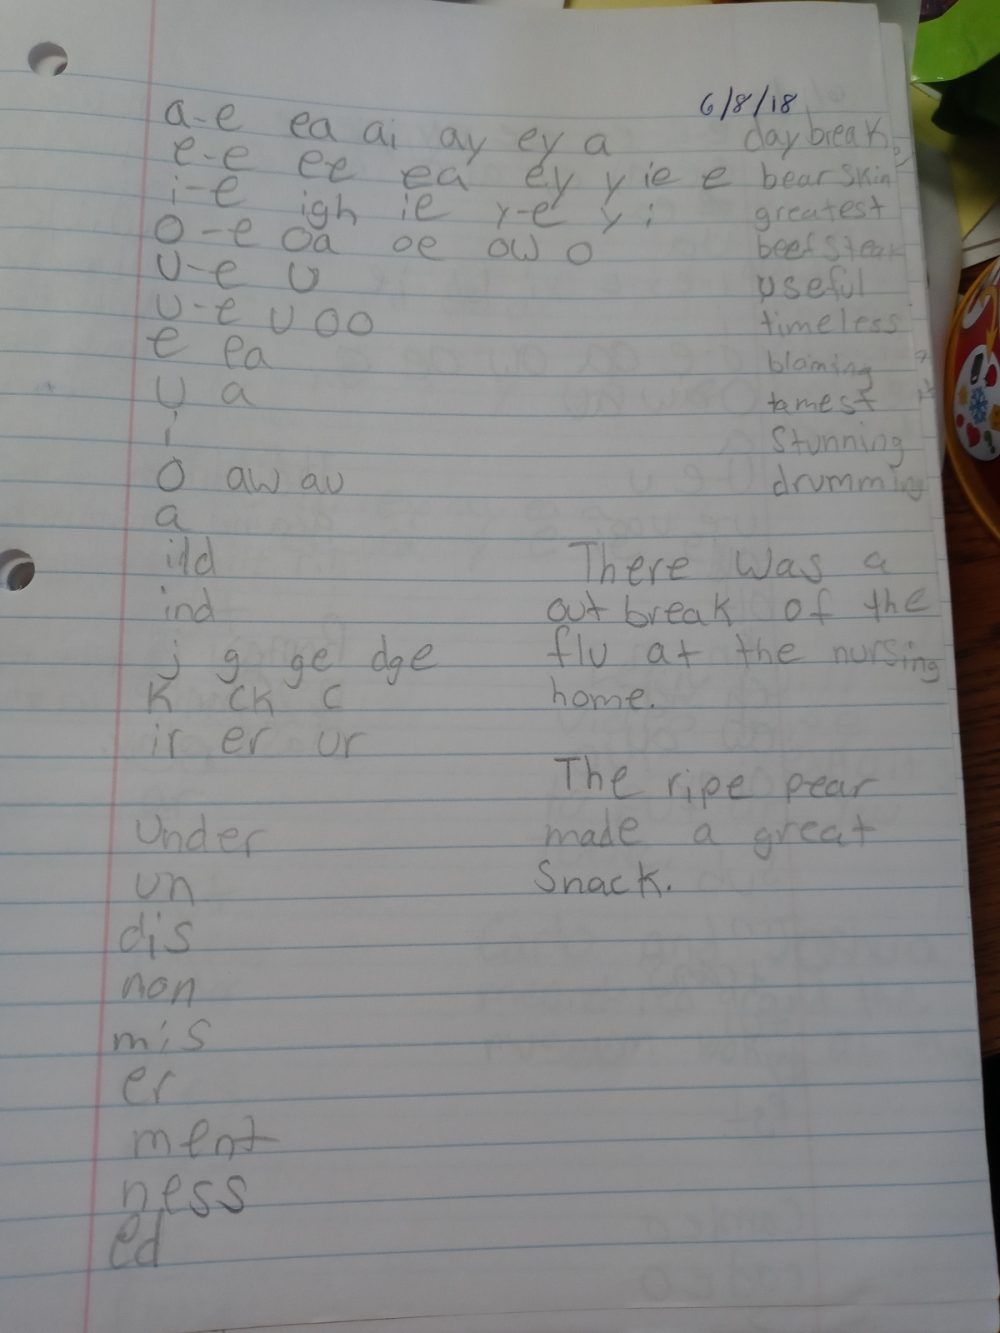 6/8/18
a-e ea ai ay ey a
e-e ee ea ey y ie e
i-e igh ie y-e y i
o-e oa oe ow o
u-e u
u-e u oo
e ea
u a
i
o aw au
a
ild
ind
j g ge dge
k ck c
ir er ur
under
un
dis
non
mis
er
ment
ness
ed
daybreak
bearskin
greatest
beefsteak
useful
timeless
blaming
tamest
stunning
drumming
There was a
outbreak of the
flu at the nursing
home.
The ripe pear
made a great
snack.